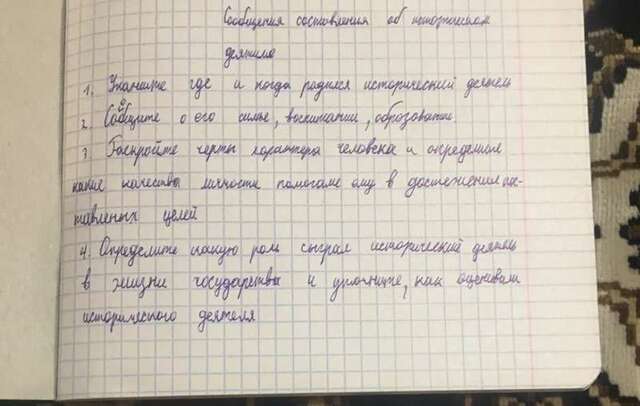 Сообщения составления об историческом
деятиле
1. Укажите где и когда родился исторический деятель
2. Сообщите о его семье, воспитании, образовании
3. Раскройте черты характера человека и определите
какие качества личности помогаме ему в достежении пос-
тавленых целей
4. Определите какую роль сыграл исторический деятель
в жизни государства и уточните, как оценивали
исторического деятеля